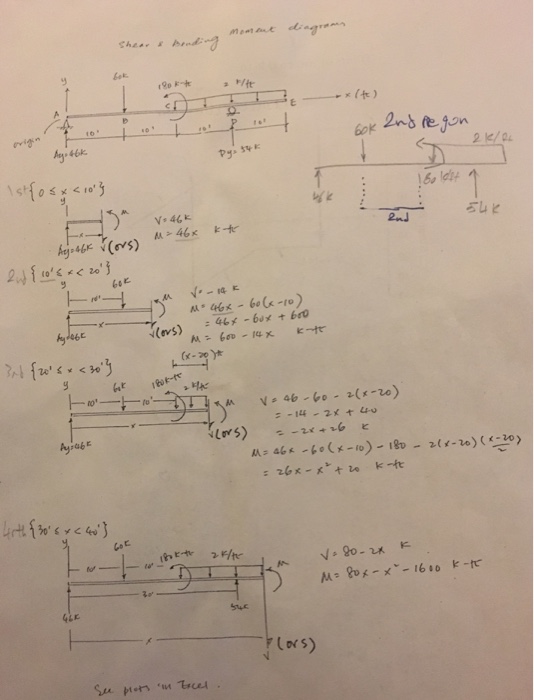 Shear & bending moment diagrams
y
60k
180 k-ft
2 k/ft
x (ft)
A
B
C
D
E
origin
10'
10'
10'
10'
Ay=46k
Dy=54k
2nd Region
60k
2 k/
46k
54k
2nd
1st {0 ≤ x < 10'}
y
M
x
Ay=46k
V(ors)
V=46k
M=46x k-ft
2nd {10' ≤ x < 20'}
y
60k
10'
M
x
Ay=46k
V(ors)
V=-14 k
M=46x - 60(x-10)
= 46x - 60x + 600
M= 600 - 14x k-ft
3rd {20' ≤ x < 30'}
(x-20)ft
y
180k-ft
2 k/ft
10'
10'
M
x
Ay=46k
V(ors)
V= 46 - 60 - 2(x-20)
= -14 - 2x + 40
= -2x + 26 k
M= 46x - 60(x-10) - 180 - 2(x-20)(x-20)/2
= 26x - x² + 20 k-ft
{30' ≤ x < 40'}
y
60k
180k-ft
2 k/ft
M
10'
10'
46k
54k
x
V(ors)
V= 80 - 2x k
M= 80x - x² - 1600 k-ft
See plots in Excel.